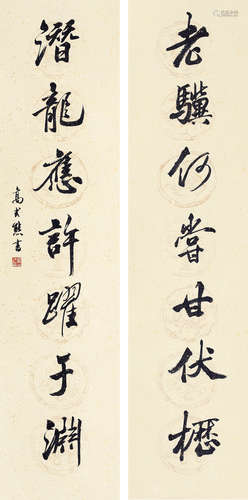 老驥何嘗甘伏櫪
潛龍應許躍于淵
高式熊書